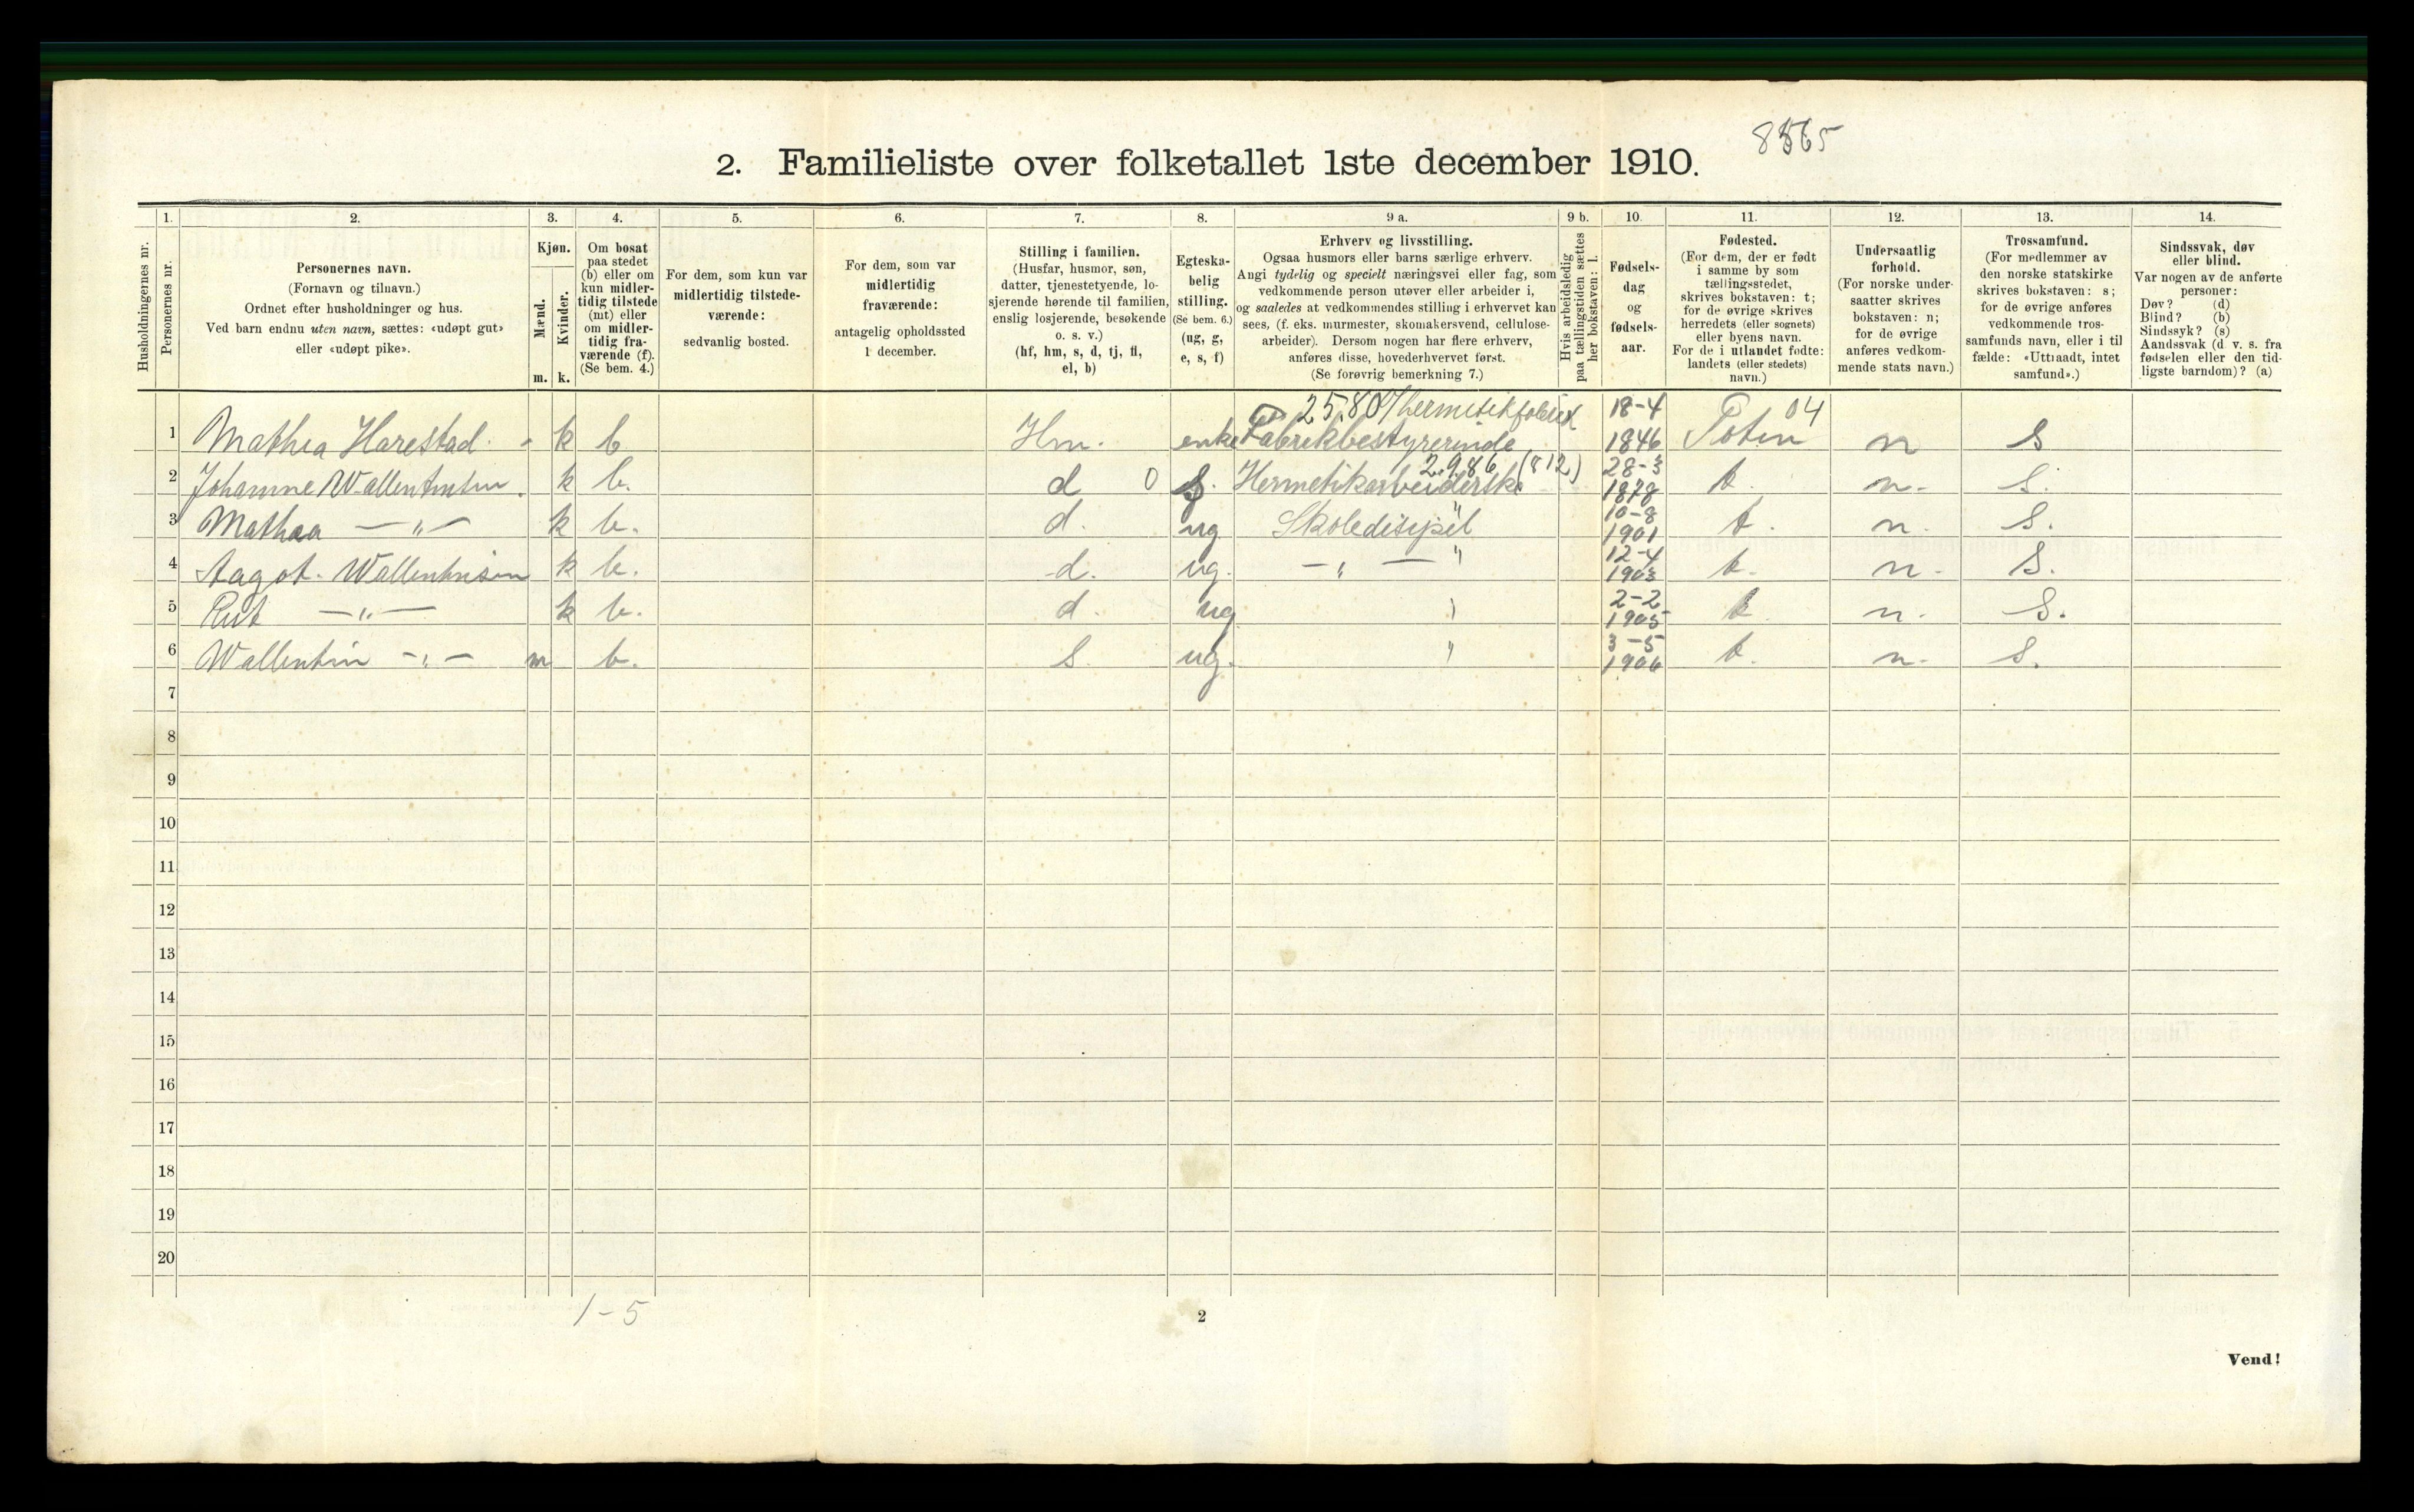 8565
2. Familieliste over folketallet 1ste december 1910.
1. 2. 3. 4. 5. 6. 7. 8. 9 a. 9 b. 10. 11. 12. 13. 14.
Husholdningernes nr.
Personernes nr.
Personernes navn.
(Fornavn og tilnavn.)
Ordnet efter husholdninger og hus.
Ved barn endnu uten navn, sættes: «udøpt gut»
eller «udøpt pike».
Kjøn.
Mænd.
Kvinder.
m. k.
Om bosat
paa stedet
(b) eller om
kun midler-
tidig tilstede
(mt) eller
om midler-
tidig fra-
værende (f).
(Se bem. 4.)
For dem, som kun var
midlertidig tilstede-
værende:
sedvanlig bosted.
For dem, som var
midlertidig
fraværende:
antagelig opholdssted
1 december.
Stilling i familien.
(Husfar, husmor, søn,
datter, tjenestetyende, lo-
sjerende hørende til familien,
enslig losjerende, besøkende
o. s. v.)
(hf, hm, s, d, tj, fl,
el, b)
Egteska-
belig
stilling.
(Se bem. 6.)
(ug, g,
e, s, f)
Erhverv og livsstilling.
Ogsaa husmors eller barns særlige erhverv.
Angi tydelig og specielt næringsvei eller fag, som
vedkommende person utøver eller arbeider i,
og saaledes at vedkommendes stilling i erhvervet kan
sees, (f. eks. murmester, skomakersvend, cellulose-
arbeider). Dersom nogen har flere erhverv,
anføres disse, hovederhvervet først.
(Se forøvrig bemerkning 7.)
Hvis arbeidsledig
paa tællingstiden sættes
her bokstaven: l.
Fødsels-
dag
og
fødsels-
aar.
Fødested.
(For dem, der er født
i samme by som
tællingsstedet,
skrives bokstaven: t;
for de øvrige skrives
herredets (eller sognets)
eller byens navn.
For de i utlandet fødte:
landets (eller stedets)
navn.)
Undersaatlig
forhold.
(For norske under-
saatter skrives
bokstaven: n;
for de øvrige
anføres vedkom-
mende stats navn.)
Trossamfund.
(For medlemmer av
den norske statskirke
skrives bokstaven: s;
for de øvrige anføres
vedkommende tros-
samfunds navn, eller i til
fælde: «Uttraadt, intet
samfund».)
Sindssvak, døv
eller blind.
Var nogen av de anførte
personer:
Døv? (d)
Blind? (b)
Sindssyk? (s)
Aandssvak (d v. s. fra
fødselen eller den tid-
ligste barndom)? (a)
2580 /hermetikfabrik 18-4 04
1 Mathea Harestad k b Hm. enke Fabrikbestyrerinde 1846 n s
2986 (812) 28-3
2 Johanne Wallentinsen. k b. d 0 s. Hermetikarbeiderske 1878 t. n. s.
10-8
3 Mathea —„— k b. d. ug Skoledisipel 1901 t. n. s.
12-4
4 Aagot. Wallentinsen k b. d. ug. —„— " 1903 t. n. s.
2-2
5 Rut —„— k b. d. ug " 1905 t. n. s.
3-5
6 Wallentin —„— m b. s. ug. " 1906 t. n. s.
7
8
9
10
11
12
13
14
15
16
17
18
19
20
1-5
2
Vend!